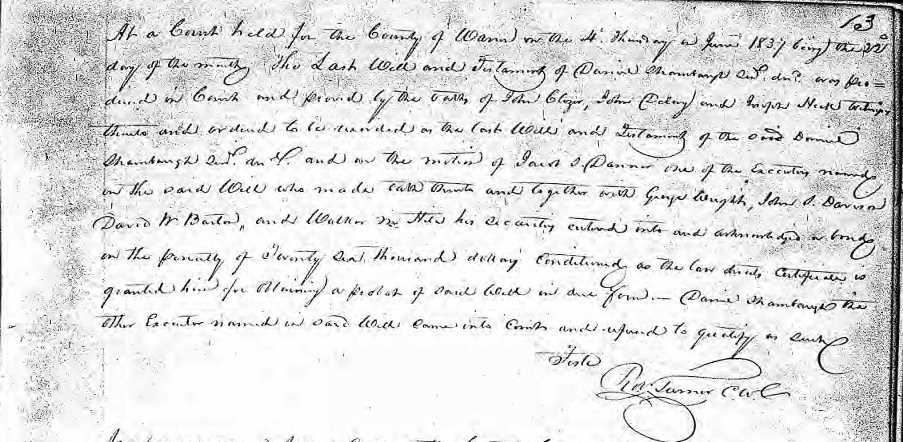 103
At a Court held for the County of Warren on the 4th Thursday in June 1837 being the 22d
day of the month The Last Will and Testament of Daniel Shambaugh Senr. decd. was pro=
duced in Court and proved by the oaths of John John and Joseph witnesses
thereto and ordered to be recorded as the last Will and Testament of the said Daniel
Shambaugh Senr. and on the motion of Jacob S. Danner one of the Executors named
in the said Will who made oath thereto and together with George Wright, John S. Davison
David W. Barton, and Walker his securities entered into and acknowledged a bond
in the penalty of Twenty thousand dollars conditioned as the law directs Certificate is
granted him for obtaining a probat of said Will in due form — Daniel Shambaugh the
other Executor named in said Will came into Court and refused to qualify as such
Teste
Rob. Turner C.W.C